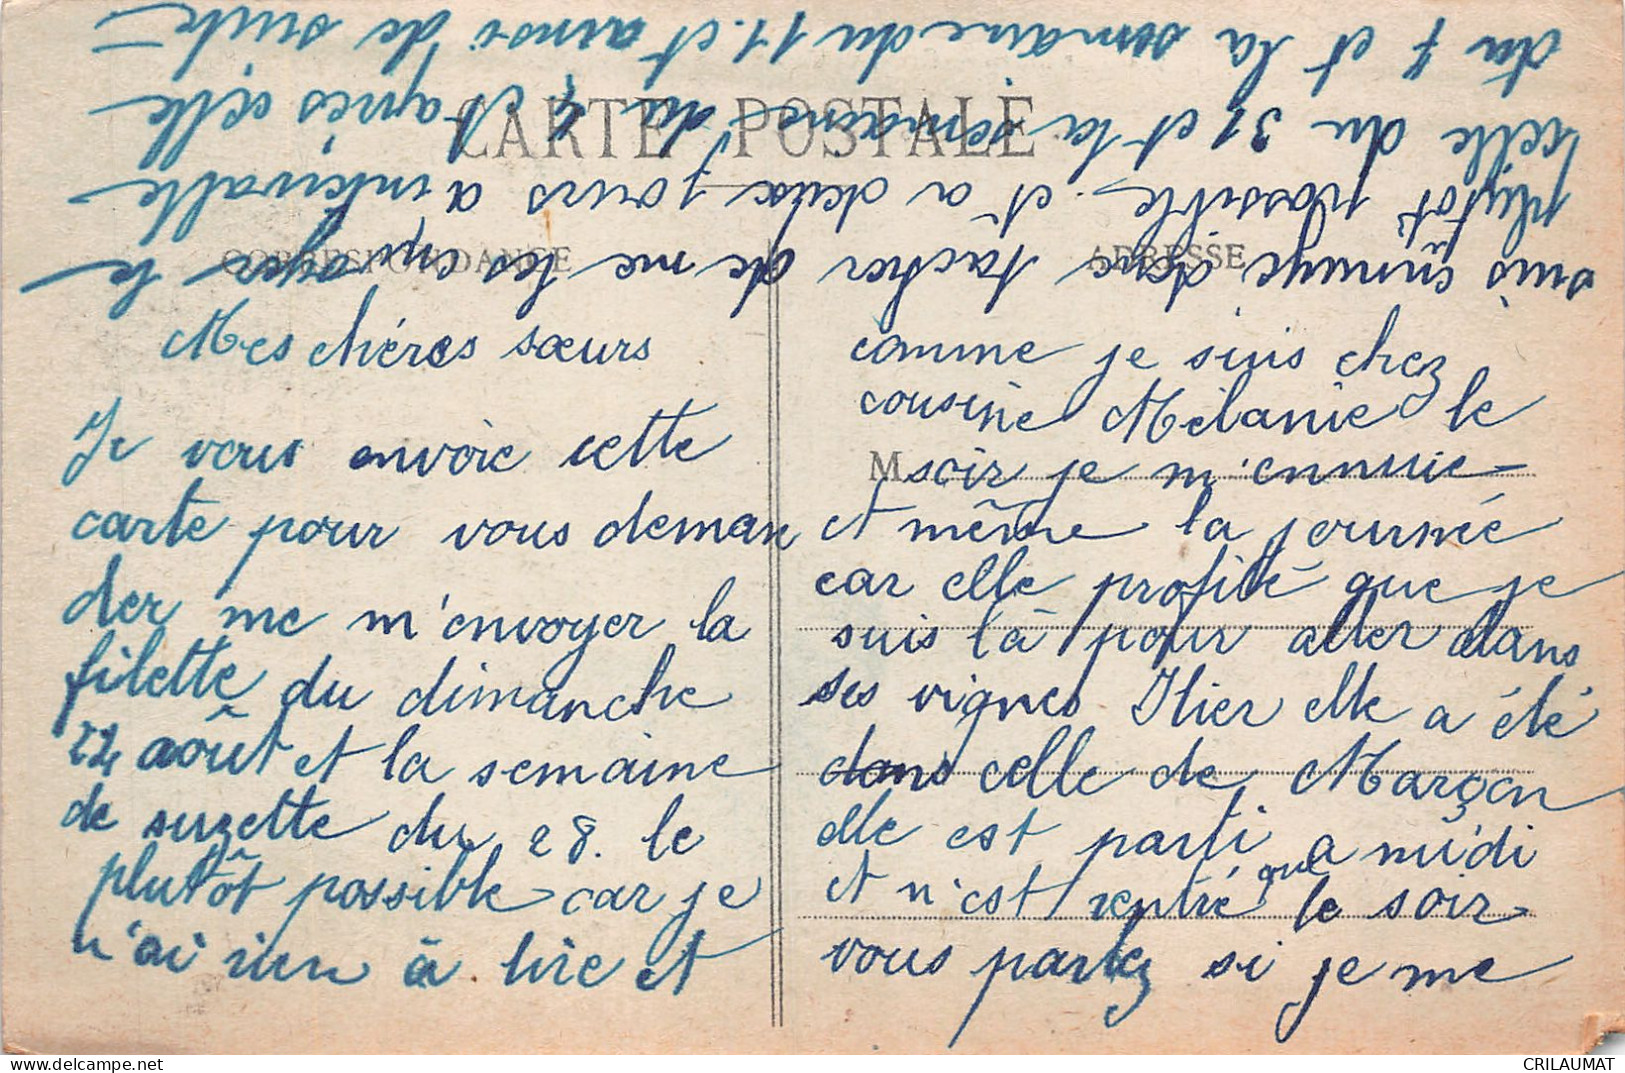 CARTE POSTALE
CORRESPONDANCE
ADRESSE
M
Mes chéres sœurs
Je vous envoie cette
carte pour vous deman
der me m'envoyer la
filette du dimanche
22 août et la semaine
de suzette du 28. le
plutôt possible car je
n'ai rien à lire et
comme je suis chez
cousine Mélanie le
soir je m'ennuie
et même la journée
car elle profite que je
suis là pour aller dans
ses vignes Hier elle a été
dans celle de Marçon
elle est parti a midi
et n'est rentré que le soir
vous parlez si je me
suis ennuyé donc tacher de me les envoyer le
plutôt possible. et a deux jours a intervalle
celle du 31 et la semaine du 4 et après celle
du 7 et la semaine du 11. et ainsi de suite
CRILAUMAT